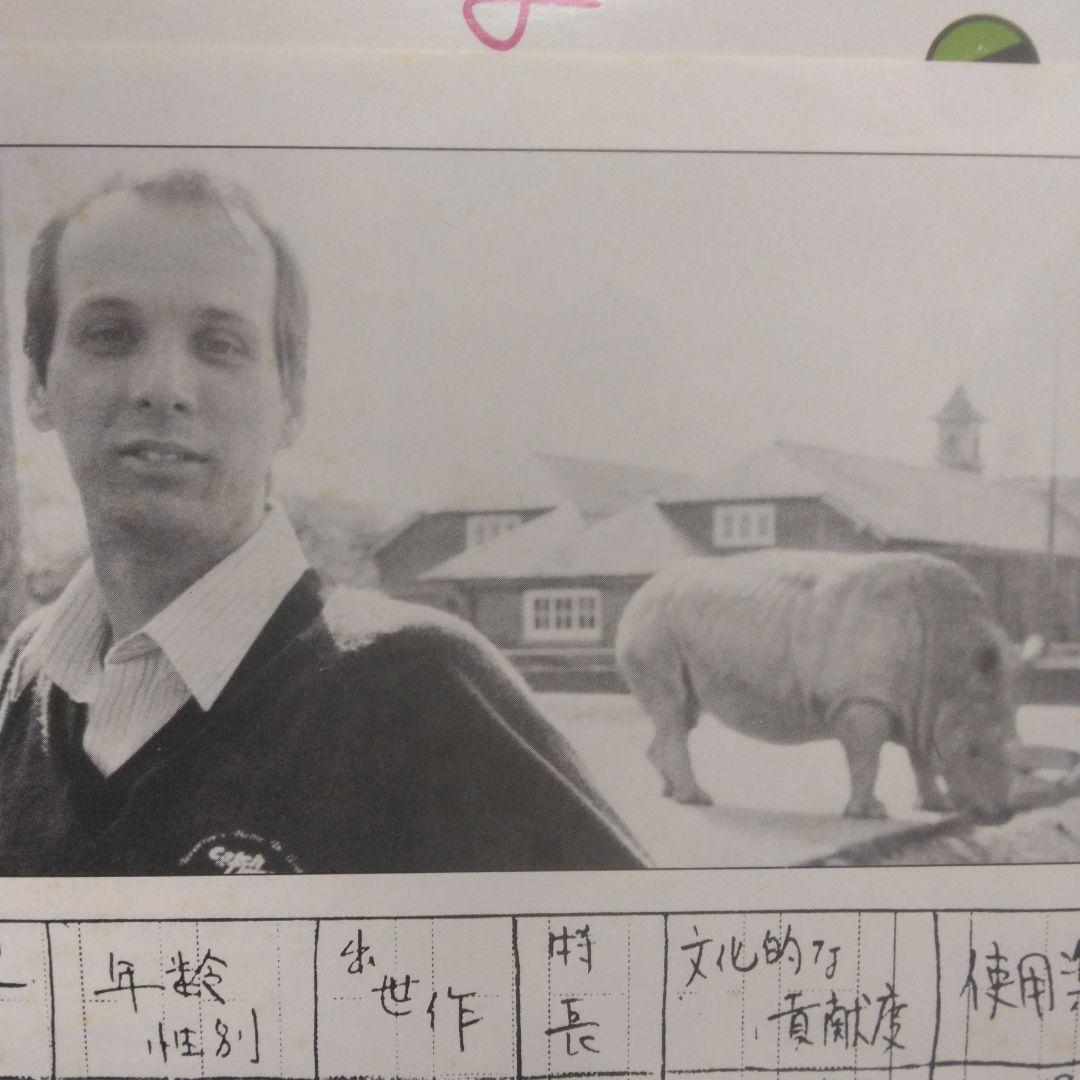 年齢
性別
出世作
特長
文化的な
貢献度
使用